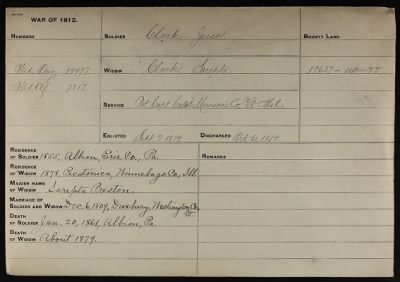 WAR OF 1812.
NUMBERS
SOLDIER Clark Jesse
BOUNTY LAND
Wid Orig 19497
WIDOW Clark Sarepta
17657-160-55
Wid Ctf 9217
SERVICE Pvt Capt Munson's Co. Vt. Mil.
ENLISTED Sept 7 1814 DISCHARGED
RESIDENCE OF SOLDIER 1855, Albion, Erie Co., Pa.
REMARKS
RESIDENCE OF WIDOW 1878, Pecatonica, Winnebago Co., Ill
MAIDEN NAME OF WIDOW Sarepta Preston.
MARRIAGE OF SOLDIER AND WIDOW Dec. 6, 1809, Duxbury, Washington Co., Vt.
DEATH OF SOLDIER Jan. 20, 1861, Albion, Pa.
DEATH OF WIDOW About 1879.